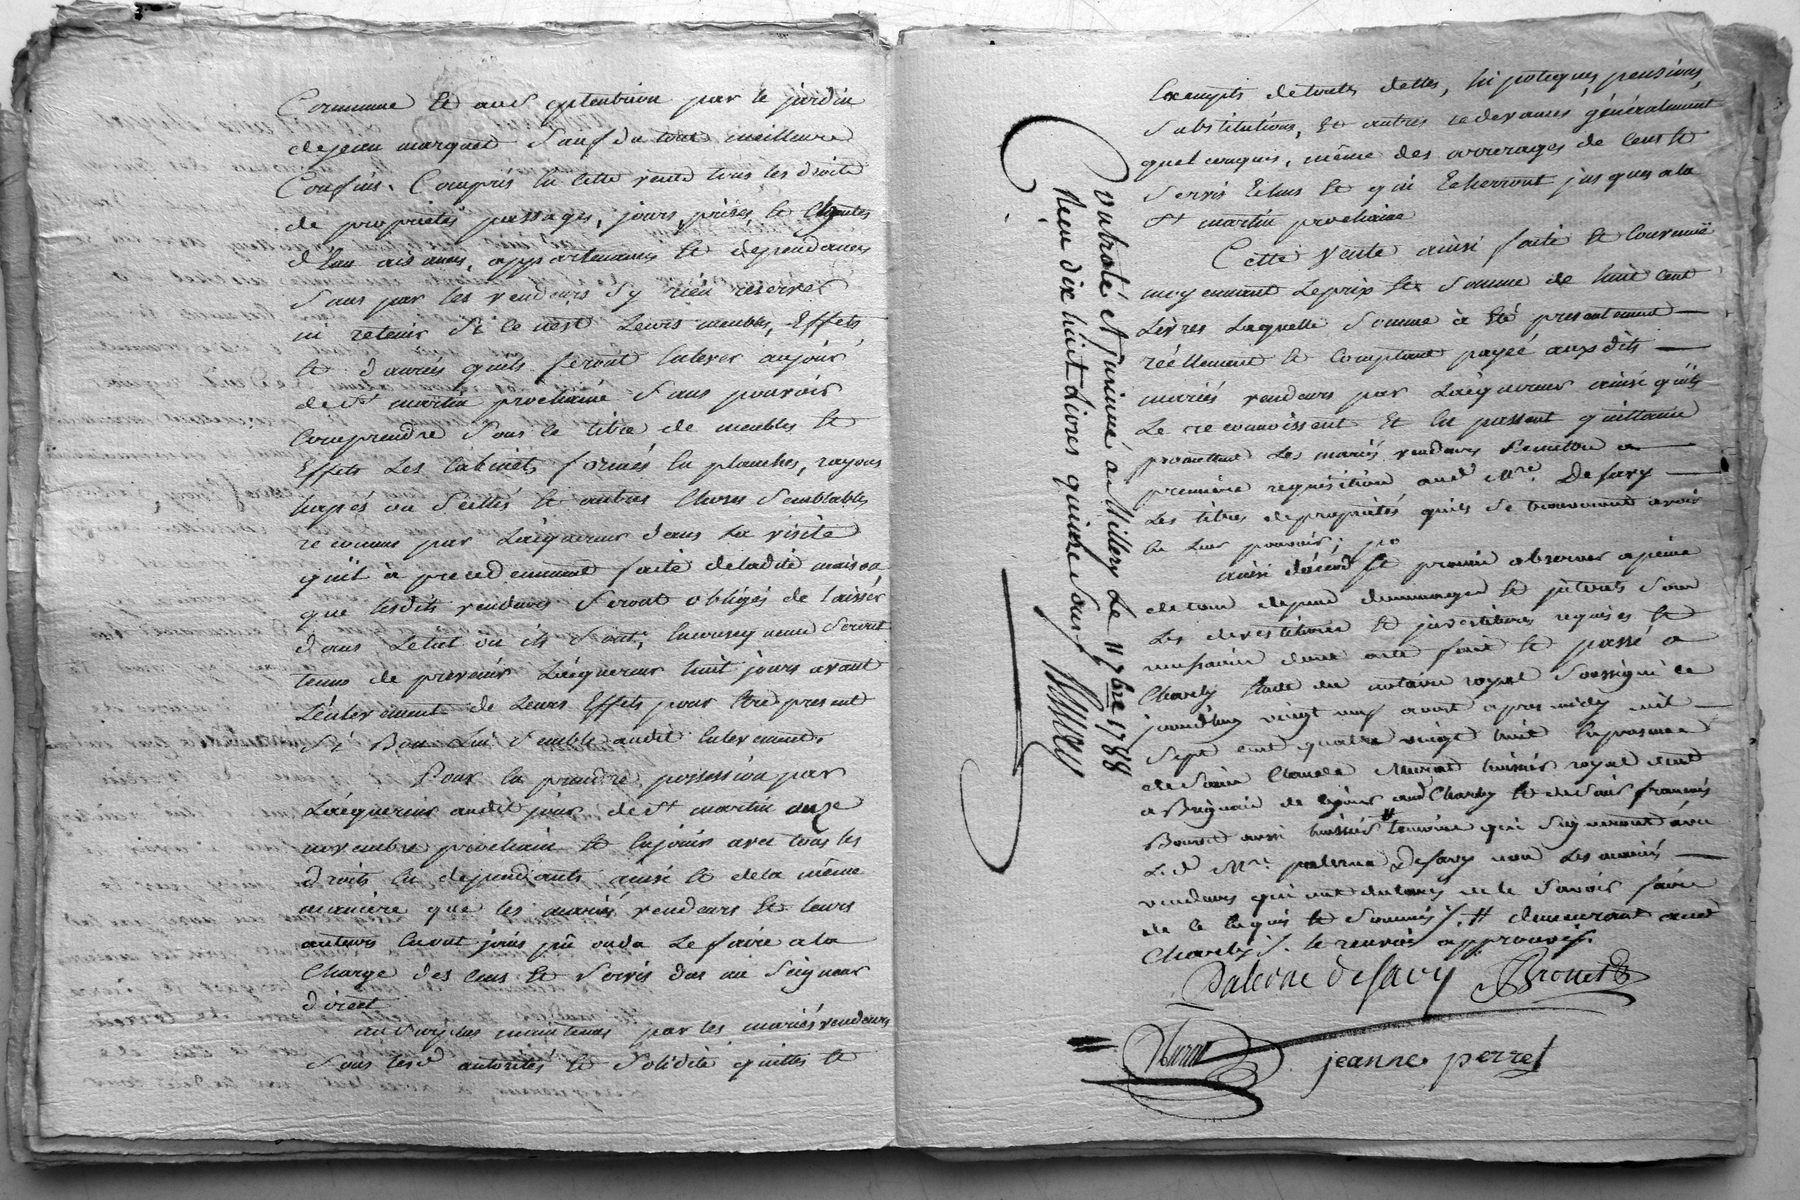 Commune et au septentrion par le jardin
de jean marquet Sauf du tout meilleure
Confins. Compris en cette vente tous les droits
de propriétés passages, jours, prises, et
aisances, appartenances et dependances
Sans par les vendeurs s'y rien reserver
ni retenir Si ce n'est Leurs meubles, Effets
et danrées quels feront enlever au jour
de St martin prochaine Sans pouvoir
Comprendre Sous le titre de meubles et
Effets Les Cabinets formés en planches, rayons
ou Scellés et autres Choses Semblables
reconnus par Lacquereur dans La visite
quil à precedemment faite de ladite maison
que lesdits vendeurs Seront obligés de laisser
dans Letat ou ils Sont, Seront
tenus de prevenir Lacquereur huit jours avant
Lenlevement de Leurs Effets pour Etre present
Si Bon Lui Semble audit Enlevement.
Pour en prendre possession par
Lacquereur audit jour de St martin onze
novembre prochain et en jouir avec tous les
droits en dependants ainsi et de la même
manière que les mariés vendeurs et leurs
auteurs en ont joüis pû ou du Le faire a la
Charge des Cens et Servis dus au Seigneur
direct
au Surplus maintenus par les mariés vendeurs
Sous lesd autorités et Solidité quittes et
Exempts de toutes dettes, hipoteques, pensions,
Substitutions, et autres redevances généralement
quelconques, même des arrerages de Cens et
Servis Echus et qui Echerront jusques a la
St martin prochaine
Cette vente ainsi faite et Convenue
moyennant Le prix et Somme de huit cent
Livres Laquelle Somme à Eté presentement
réellement et Comptant payeé auxdits
mariés vendeurs par Lacquereur ainsi quils
Le reconnoissent et En passent quittance
promettant Les mariés vendeurs remettre a
première requisition aud Mre. Defavy
Les titres de propriétés quils Se trouveront avoir
En Leur pouvoir;
ainsi et promis observer a peine
de tous depens dommages et interets Sous
Les devestitures et investitures requises et
fait et passé a
Charly Etude du notaire royal Soussigné Le
vingt neuf aout apres midy mil
Sept cent quatre vingt huit En presence
de Sieur Claude huissier royal
a Brignais de Charly et de Sieur françois
aussi temoins qui Signeront avec
Led Mre. palerne Defavy non Les mariés
vendeurs qui ont declarés ne le Savoir faire
de ce Enquis et Sommés /. # demeurant aud
Charly /. le renvoi approuvé /.
Palerne Defavy
jeanne perret
Controlé et insinué a Millery Le 11 7bre 1788
Reçu dix huit Livres quinze Sous